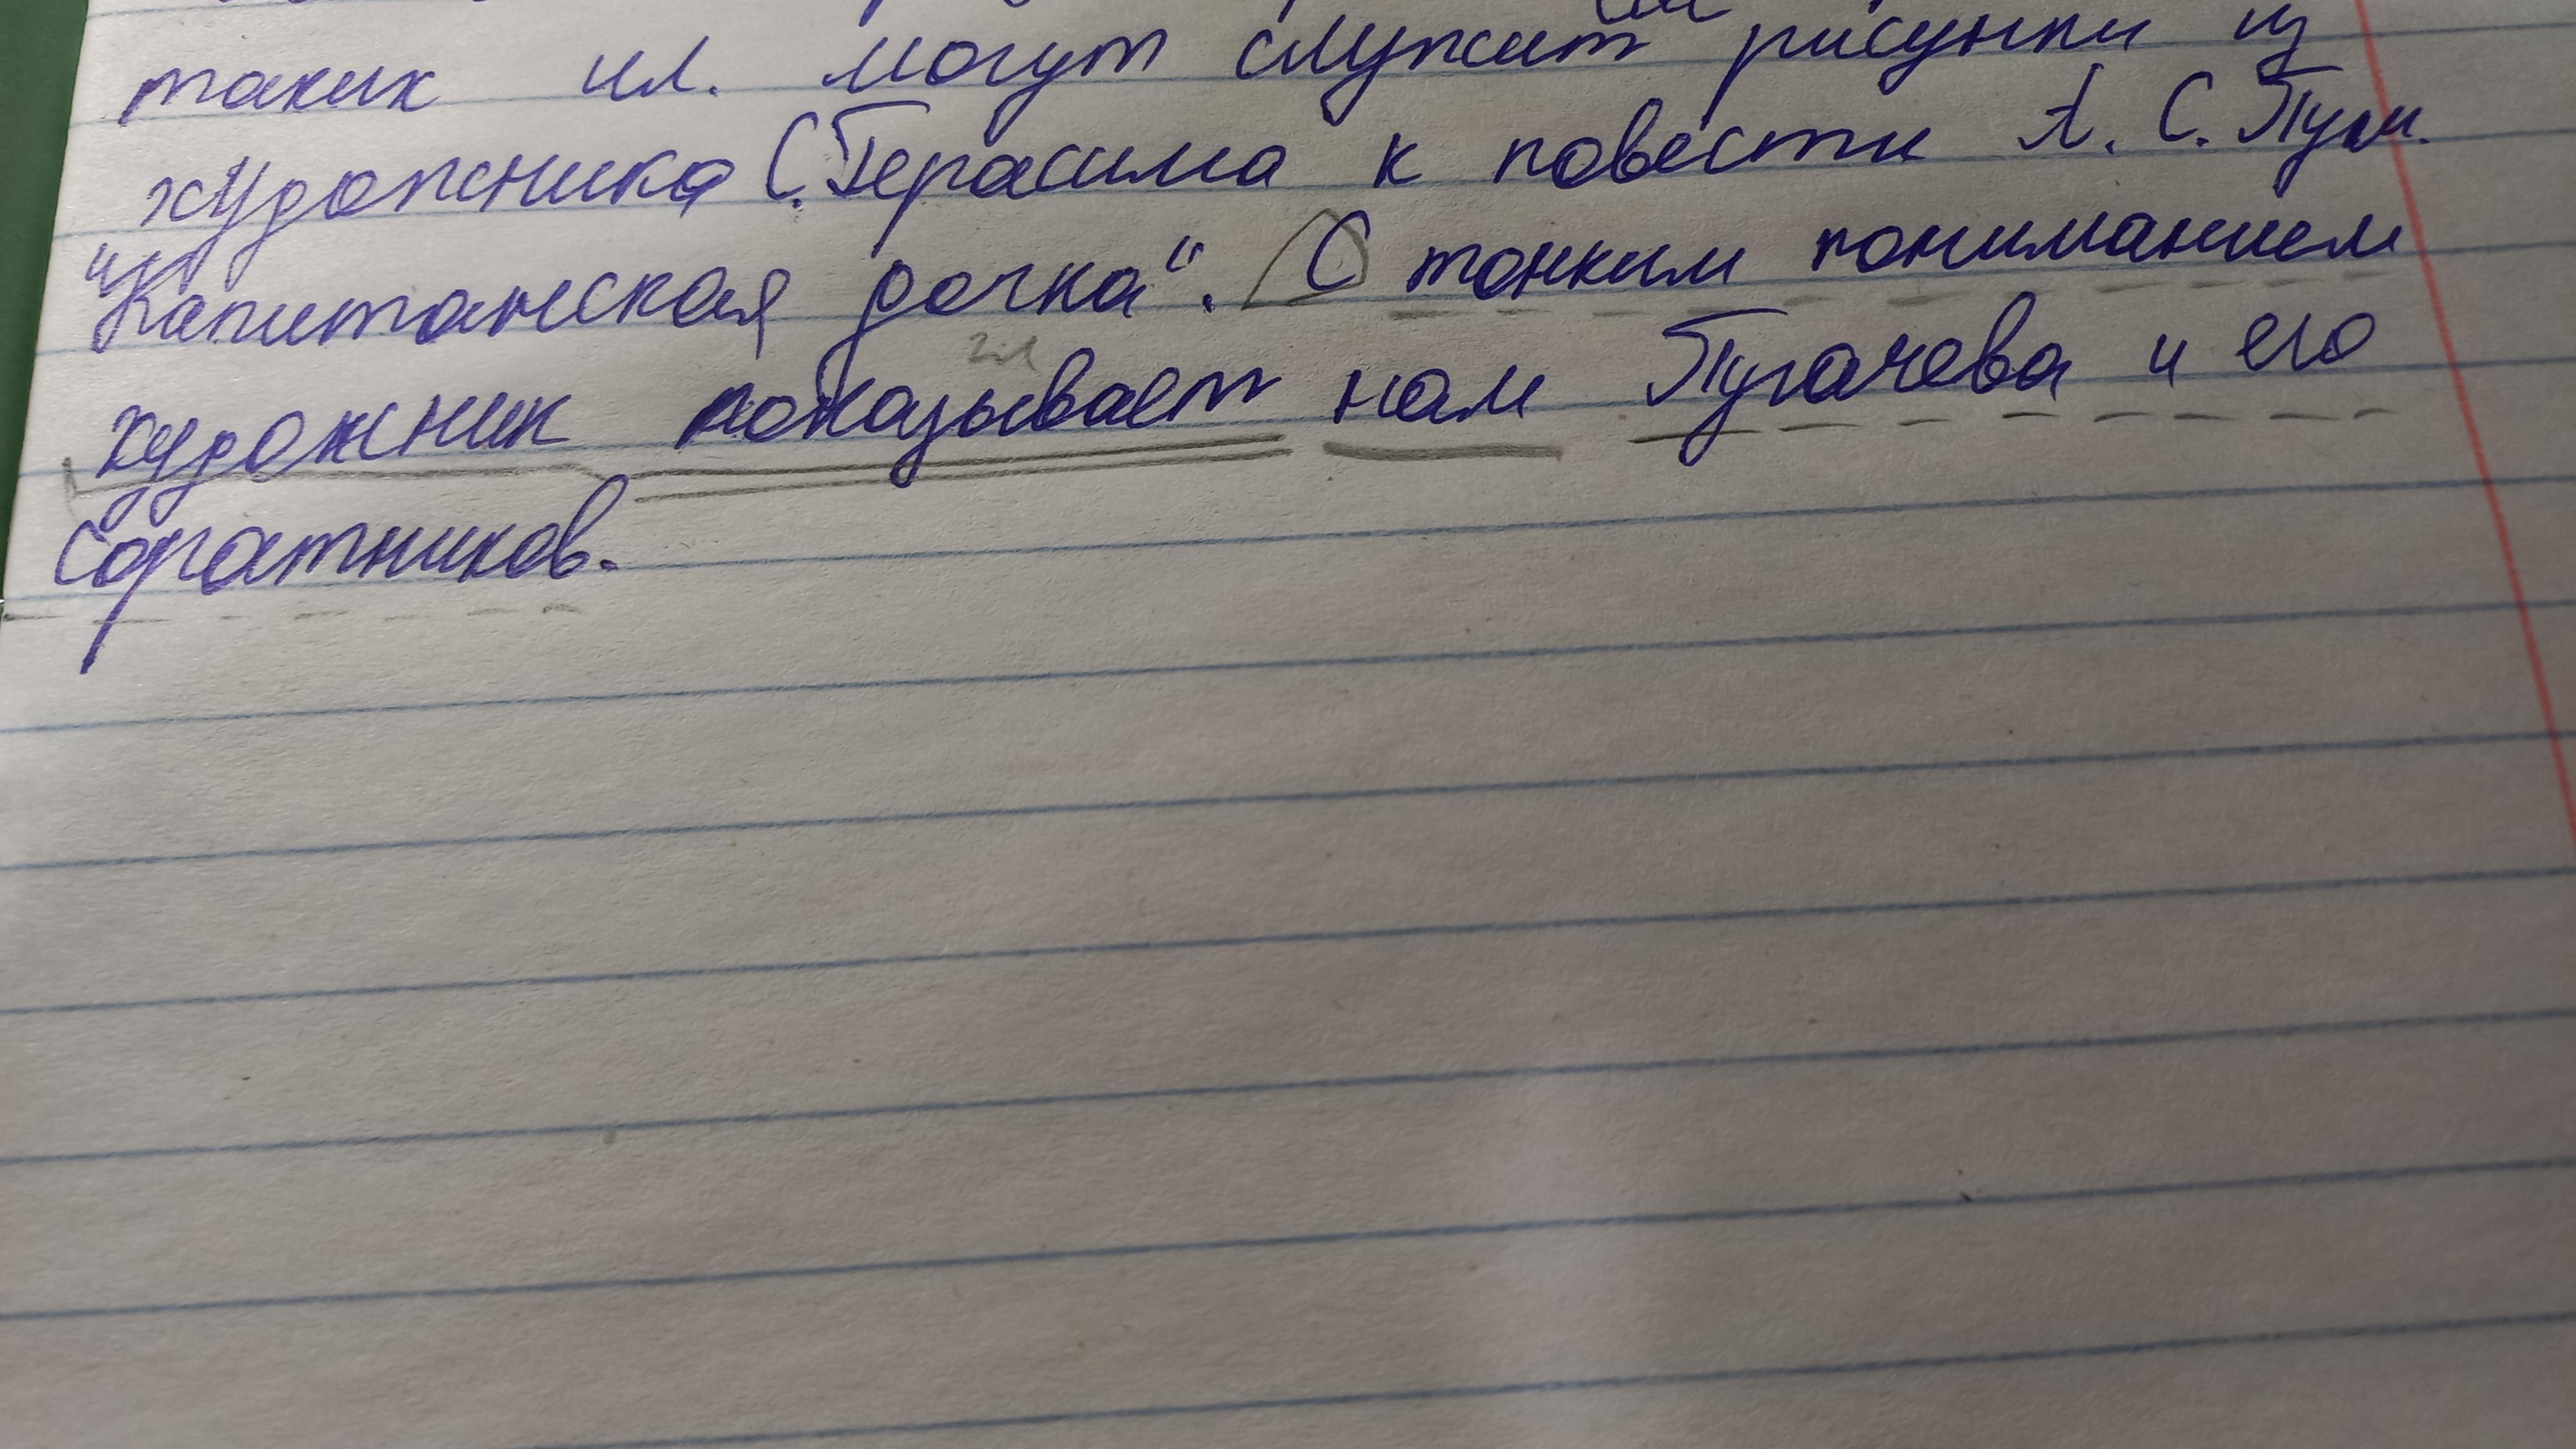 таких ил. могут служит рисунки из
художника С. Герасима к повести А. С. Пуш.
"Капитанская дочка". С тонким пониманием
гл
художник показывает нам Пугачева и его
соратников.